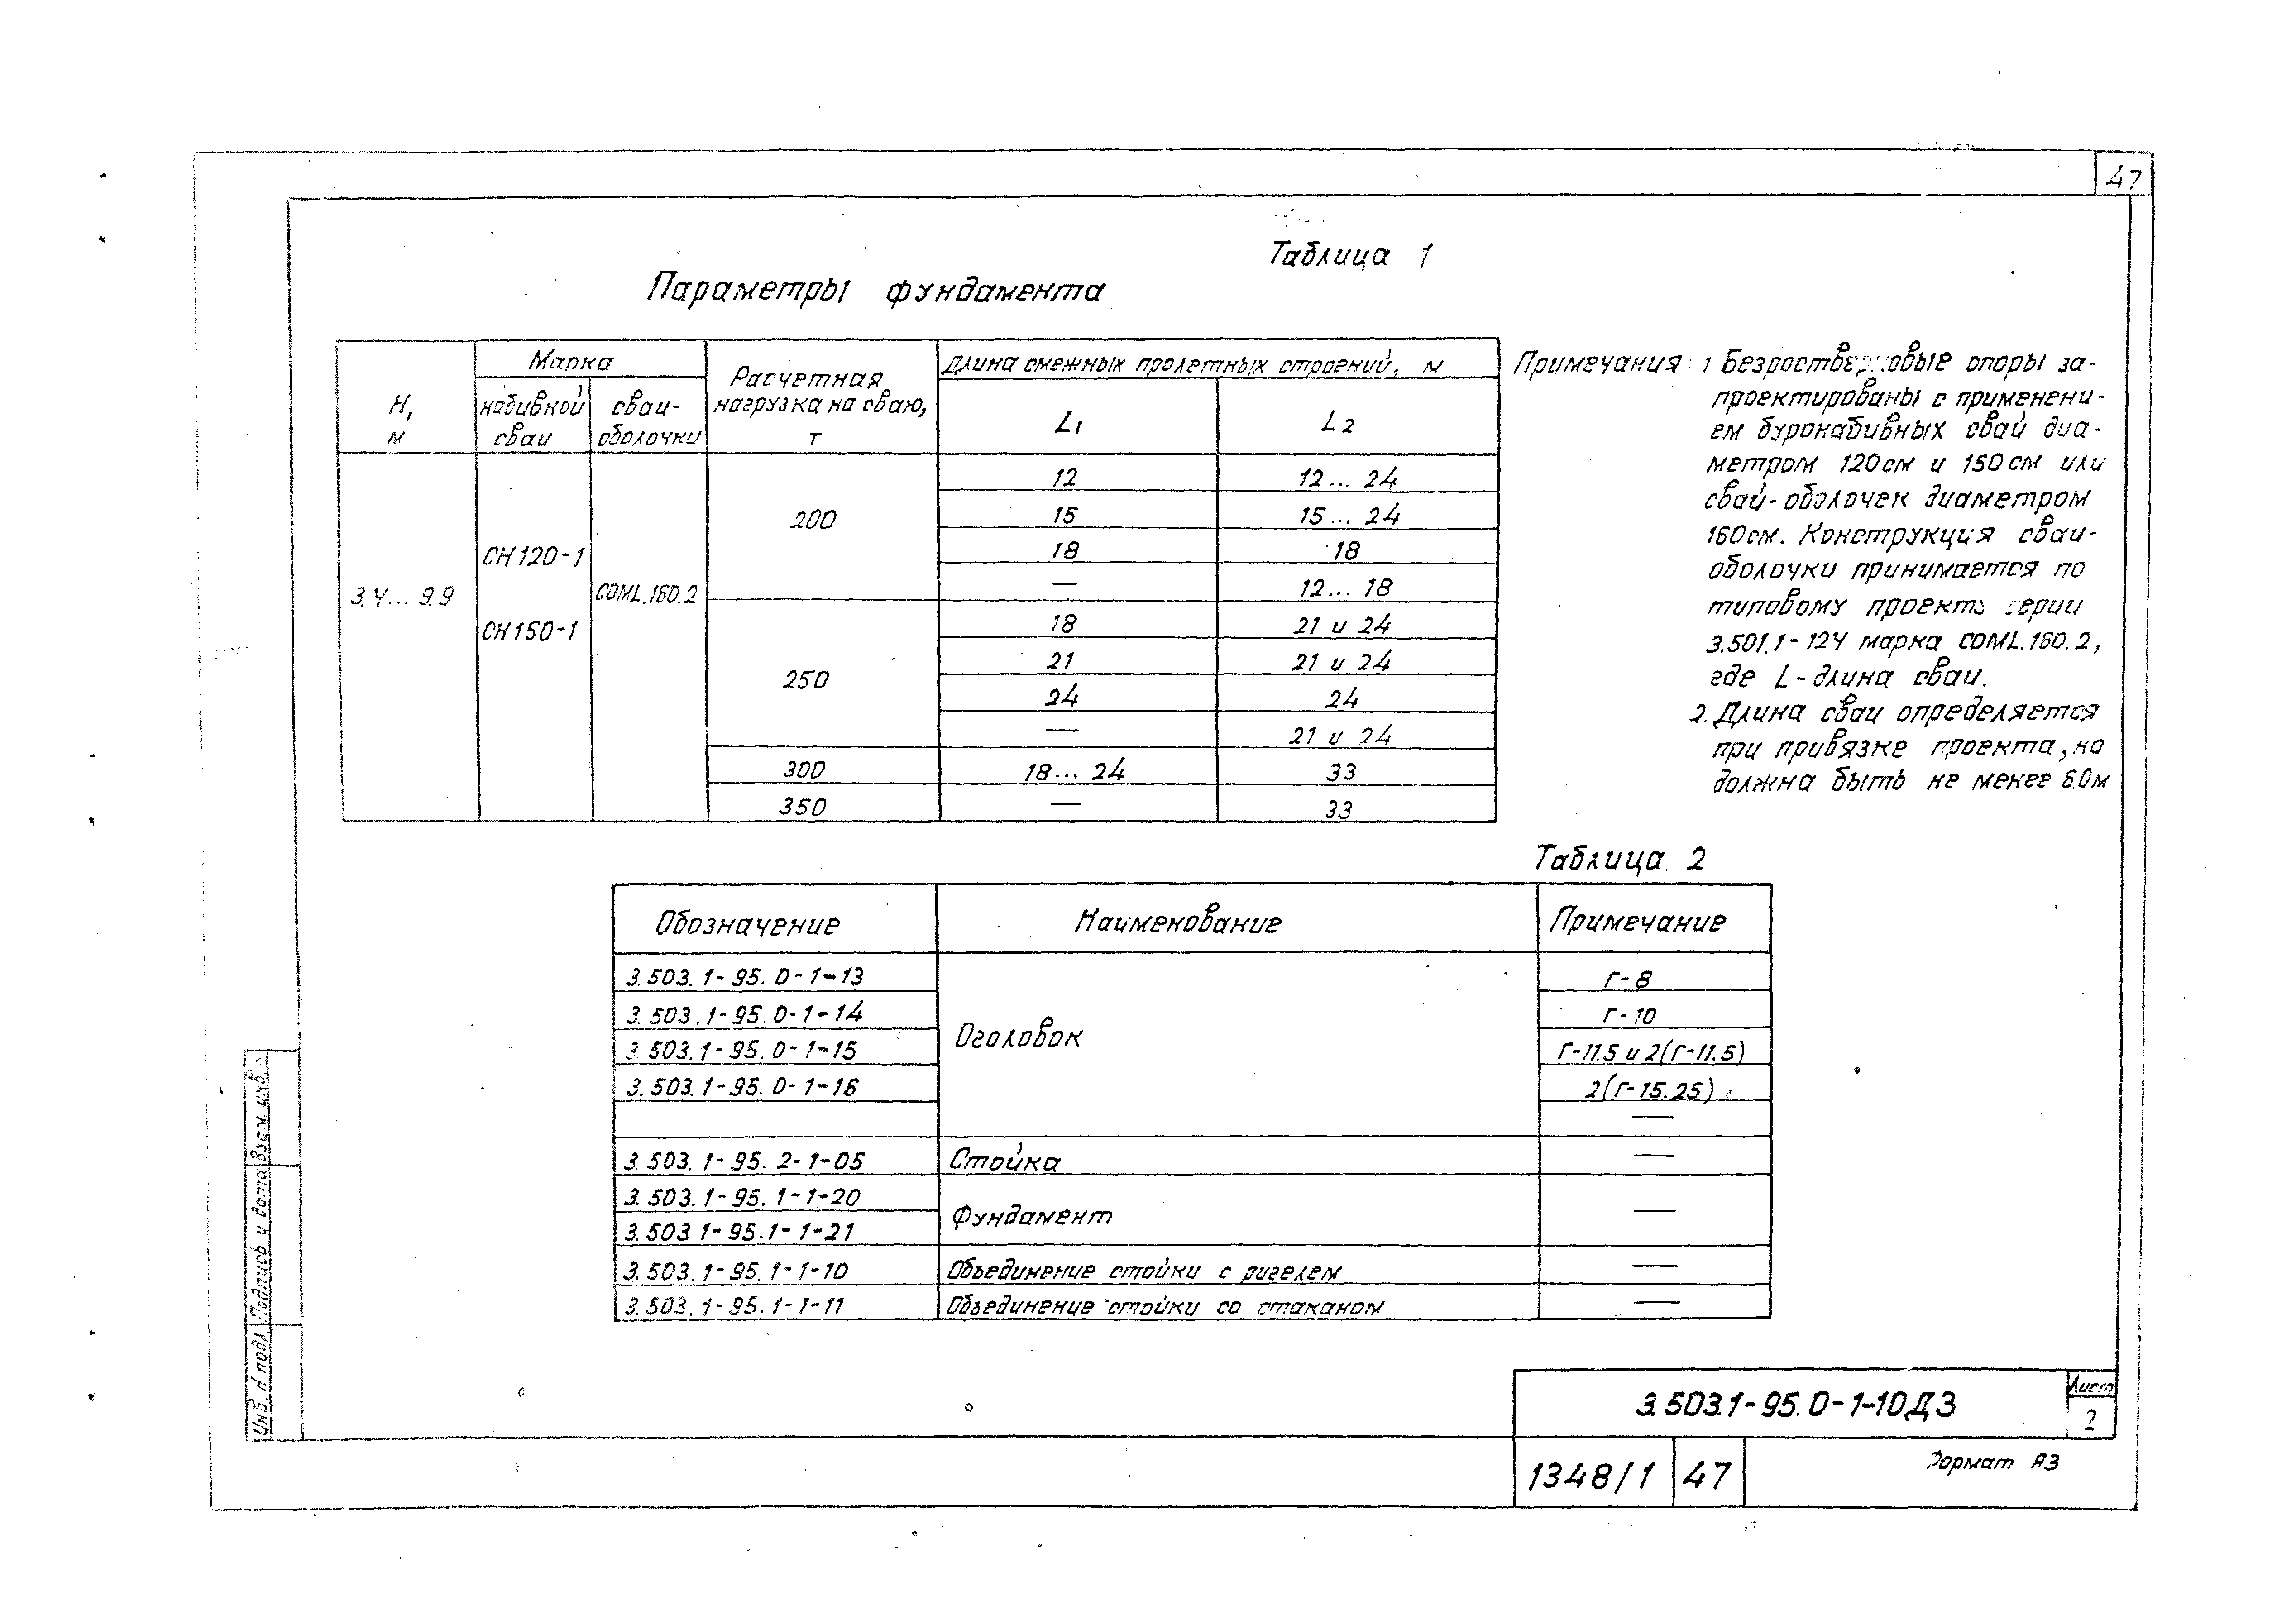 47
Таблица 1
Параметры фундамента
Н, м
Марка
набивной сваи
сваи-оболочки
Расчетная нагрузка на сваю, т
Длина смежных пролетных строений, м
L1
L2
3.4... 9.9
СН120-1
СН150-1
СОМL.160.2
200
12
12... 24
15
15... 24
18
18
—
12... 18
250
18
21 и 24
21
21 и 24
24
24
—
21 и 24
300
18... 24
33
350
—
33
Примечания: 1 Безростверковые опоры за-
проектированы с применени-
ем буронабивных свай диа-
метром 120см и 150см или
свай-оболочек диаметром
160см. Конструкция сваи-
оболочки принимается по
типовому проекту серии
3.501.1-124 марка СОМL.160.2,
где L-длина сваи.
2. Длина сваи определяется
при привязке проекта, но
должна быть не менее 6.0м
Таблица 2
Обозначение
Наименование
Примечание
3.503.1-95.0-1-13
Г-8
3.503.1-95.0-1-14
Г-10
Оголовок
3.503.1-95.0-1-15
Г-11.5 и 2(Г-11.5)
3.503.1-95.0-1-16
2(Г-15.25)
—
3.503.1-95.2-1-05
Стойка
—
3.503.1-95.1-1-20
Фундамент
—
3.503.1-95.1-1-21
3.503.1-95.1-1-10
Объединение стойки с ригелем
—
3.503.1-95.1-1-11
Объединение стойки со стаканом
—
Инв. N подл.
Подпись и дата
Взам. инв.
3.503.1-95.0-1-10Д3
Лист
2
1348/1
47
Формат А3